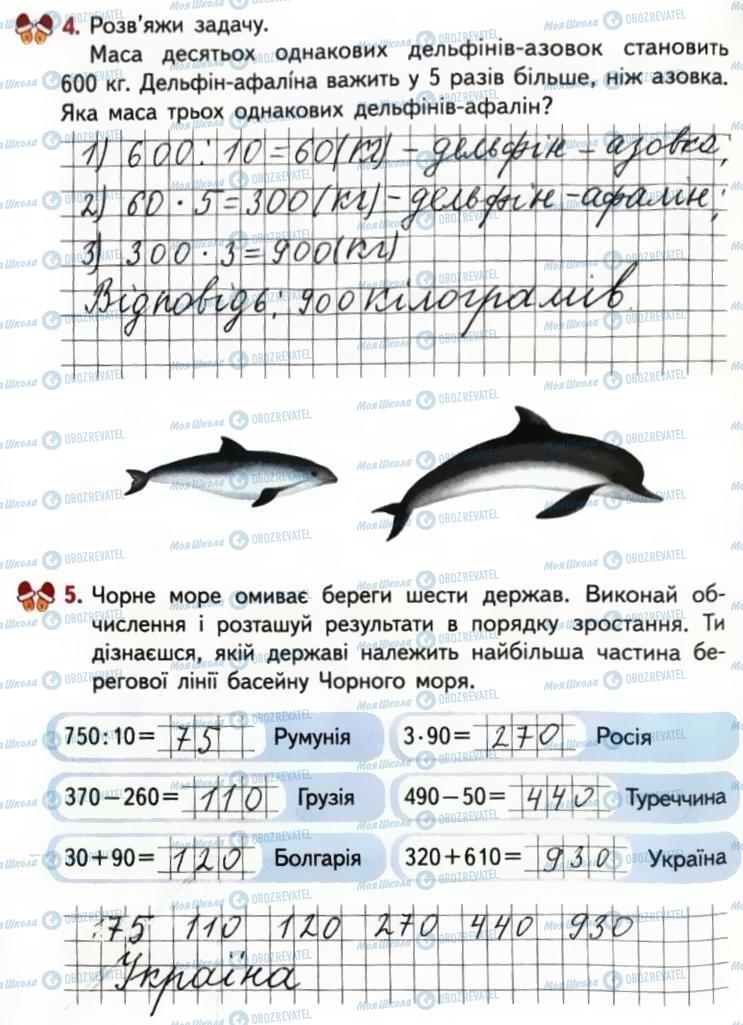 4. Розв'яжи задачу.
Маса десятьох однакових дельфінів-азовок становить
600 кг. Дельфін-афаліна важить у 5 разів більше, ніж азовка.
Яка маса трьох однакових дельфінів-афалін?
1) 600 : 10 = 60 (кг) - дельфін - азовка;
2) 60 · 5 = 300 (кг) - дельфін - афалін;
3) 300 · 3 = 900 (кг)
Відповідь: 900 кілограмів
5. Чорне море омиває береги шести держав. Виконай об-
числення і розташуй результати в порядку зростання. Ти
дізнаєшся, якій державі належить найбільша частина бе-
регової лінії басейну Чорного моря.
750:10= 75 Румунія 3·90= 270 Росія
370-260= 110 Грузія 490-50= 440 Туреччина
30+90= 120 Болгарія 320+610= 930 Україна
75 110 120 270 440 930
Україна
МояШкола OBOZREVATEL